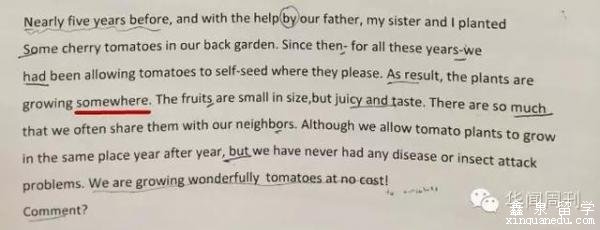 Nearly five years before, and with the help by our father, my sister and I planted
Some cherry tomatoes in our back garden. Since then- for all these years-we
had been allowing tomatoes to self-seed where they please. As result, the plants are
growing somewhere. The fruits are small in size,but juicy and taste. There are so much
that we often share them with our neighbors. Although we allow tomato plants to grow
in the same place year after year, but we have never had any disease or insect attack
problems. We are growing wonderfully tomatoes at no cost!
Comment?
华闻周刊
鑫泉留学
xinquanedu.com